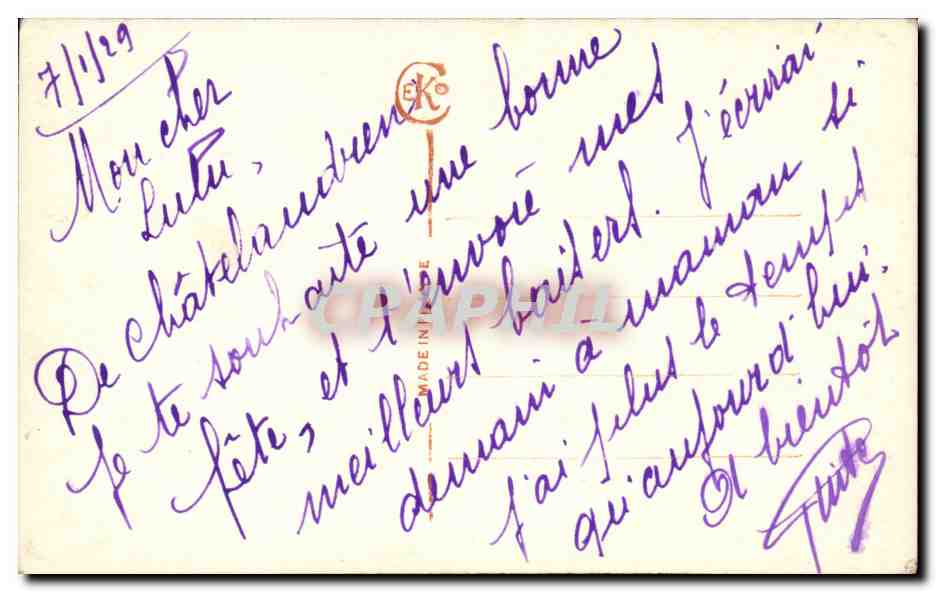 7/1/29
Mon cher
Lulu,
De châtelaudren
Je te souhaite une bonne
fête, et t'envoie mes
meilleurs baisers. J'écrirai
demain à maman si
j'ai plus le temps
qu'aujourd'hui.
A bientôt
CEKO
MADE IN FRANCE
CPAPHIL